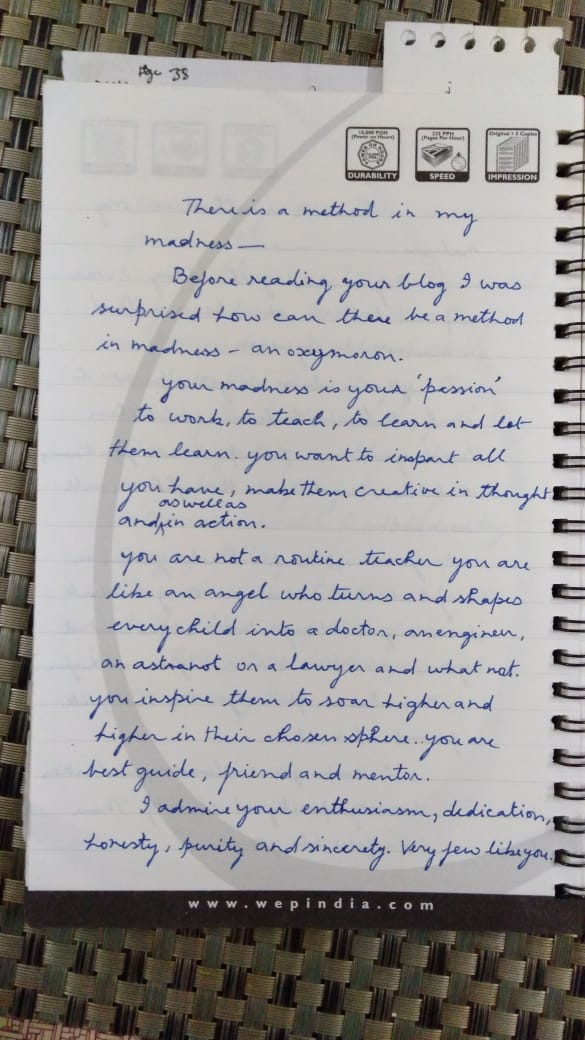 Age 38
10,000 POH
(Power on Hours)
DURABILITY
225 PPH
(Pages Per Hour)
SPEED
Original + 5 Copies
IMPRESSION
There is a method in my
madness —
Before reading your blog I was
surprised how can there be a method
in madness – an oxymoron.
your madness is your 'passion'
to work, to teach, to learn and let
them learn. you want to inspart all
you have, make them creative in thought
as well as
and in action.
you are not a routine teacher you are
like an angel who turns and shapes
every child into a doctor, an engineer,
an astranot or a lawyer and what not.
you inspire them to soar higher and
higher in their chosen sphere.. you are
best guide, friend and mentor.
I admire your enthusiasm, dedication,
honesty, purity and sincerety. Very few like you.
www.wepindia.com